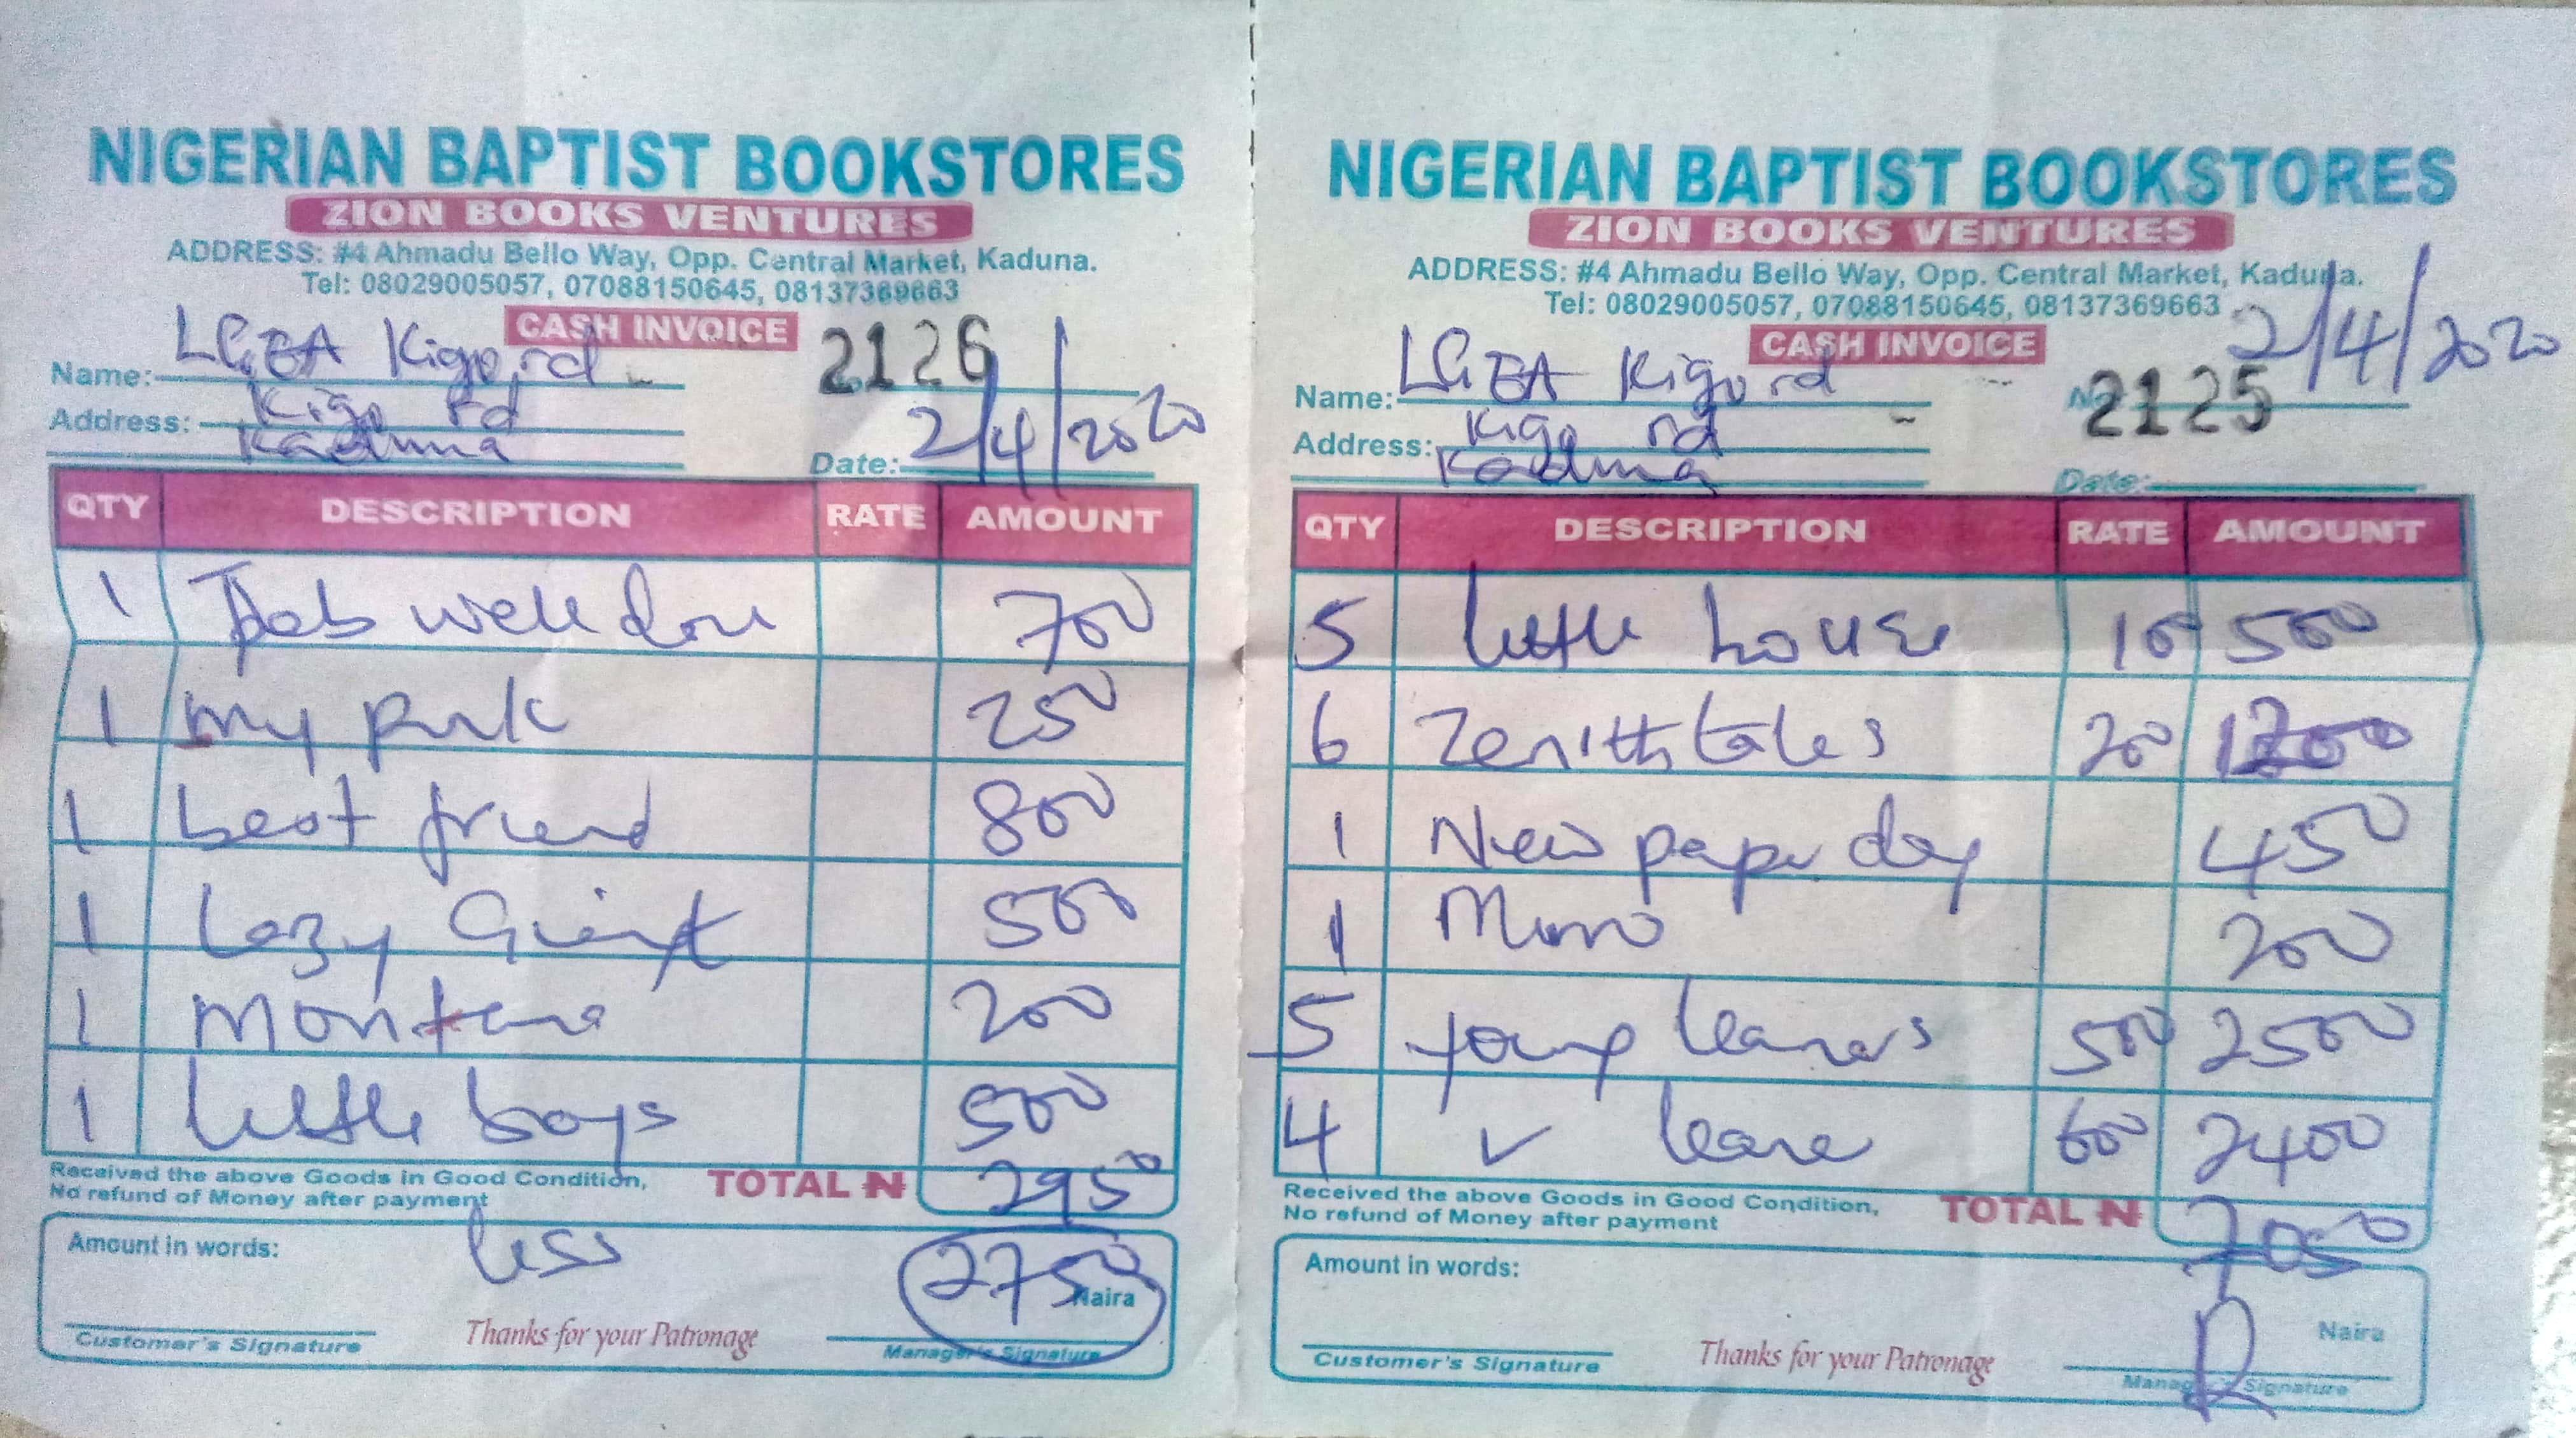 NIGERIAN BAPTIST BOOKSTORES
ZION BOOKS VENTURES
ADDRESS: #4 Ahmadu Bello Way, Opp. Central Market, Kaduna.
Tel: 08029005057, 07088150645, 08137369663
CASH INVOICE
2126
Name: LGEA Kigo rd
Address: Kigo rd
Kaduna
Date: 2/4/2020
QTY DESCRIPTION RATE AMOUNT
1 Job well done 700
1 my park 250
1 best friend 800
1 Lazy Giant 500
1 200
1 little boys 500
Received the above Goods in Good Condition,
No refund of Money after payment
TOTAL N 2950
Amount in words: less 2750 Naira
Customer's Signature
Thanks for your Patronage
Manager's Signature
NIGERIAN BAPTIST BOOKSTORES
ZION BOOKS VENTURES
ADDRESS: #4 Ahmadu Bello Way, Opp. Central Market, Kaduna.
Tel: 08029005057, 07088150645, 08137369663
CASH INVOICE
2/4/2020
Name: LGEA Kigo rd
No 2125
Address: Kigo rd
Kaduna
Date:
QTY DESCRIPTION RATE AMOUNT
5 little house 100 500
6 Zenith tales 200 1200
1 New paper day 450
1 200
5 young leaners 500 2500
4 leane 600 2400
Received the above Goods in Good Condition,
No refund of Money after payment
TOTAL N 7050
Amount in words:
Naira
Customer's Signature
Thanks for your Patronage
Manager's Signature